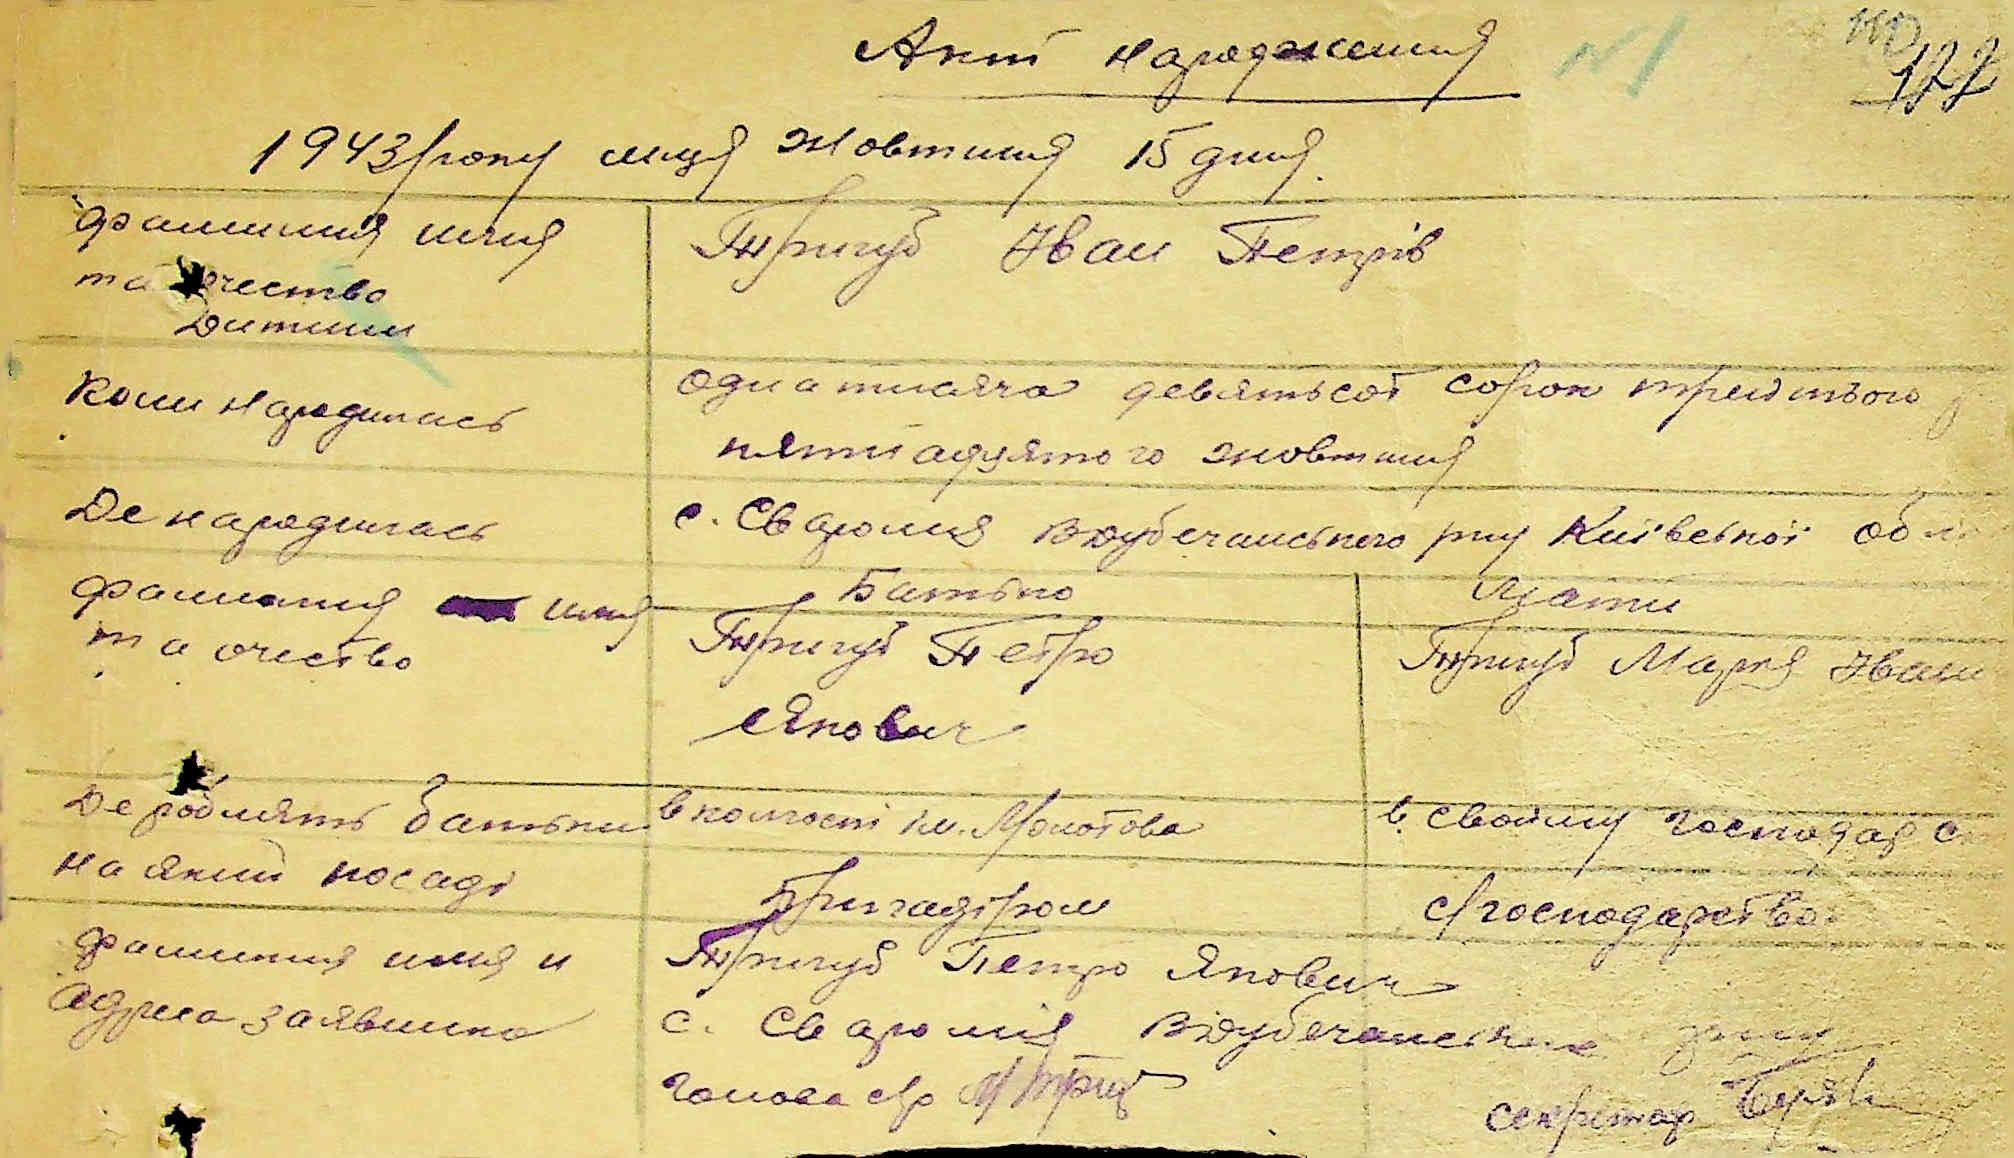 Акт народження №1
110
177
1943 року м-ця Жовтня 15 дня.
фамилия имя
та очество
Дитини
Тригуб Иван Петрів
Коли народилась
Одна тисяча девятьсот сорок третього
пятнадцятого жовтня
Де народилась
с. Сваромя В Дубечанського р-ну Київської обл
фамилия имя
та очество
Батько
Мати
Тригуб Петро
Якович
Тригуб Мария Иван
Де роблять батьки
в колгоспі ім. Молотова
в своїму господарс
на якій посаді
Бригадіром
с/господарство
фамилия имя и
Адреса заявника
Тригуб Петро Якович
с. Сваромія В Дубечанськ р-ну
Голова с/р
секретар